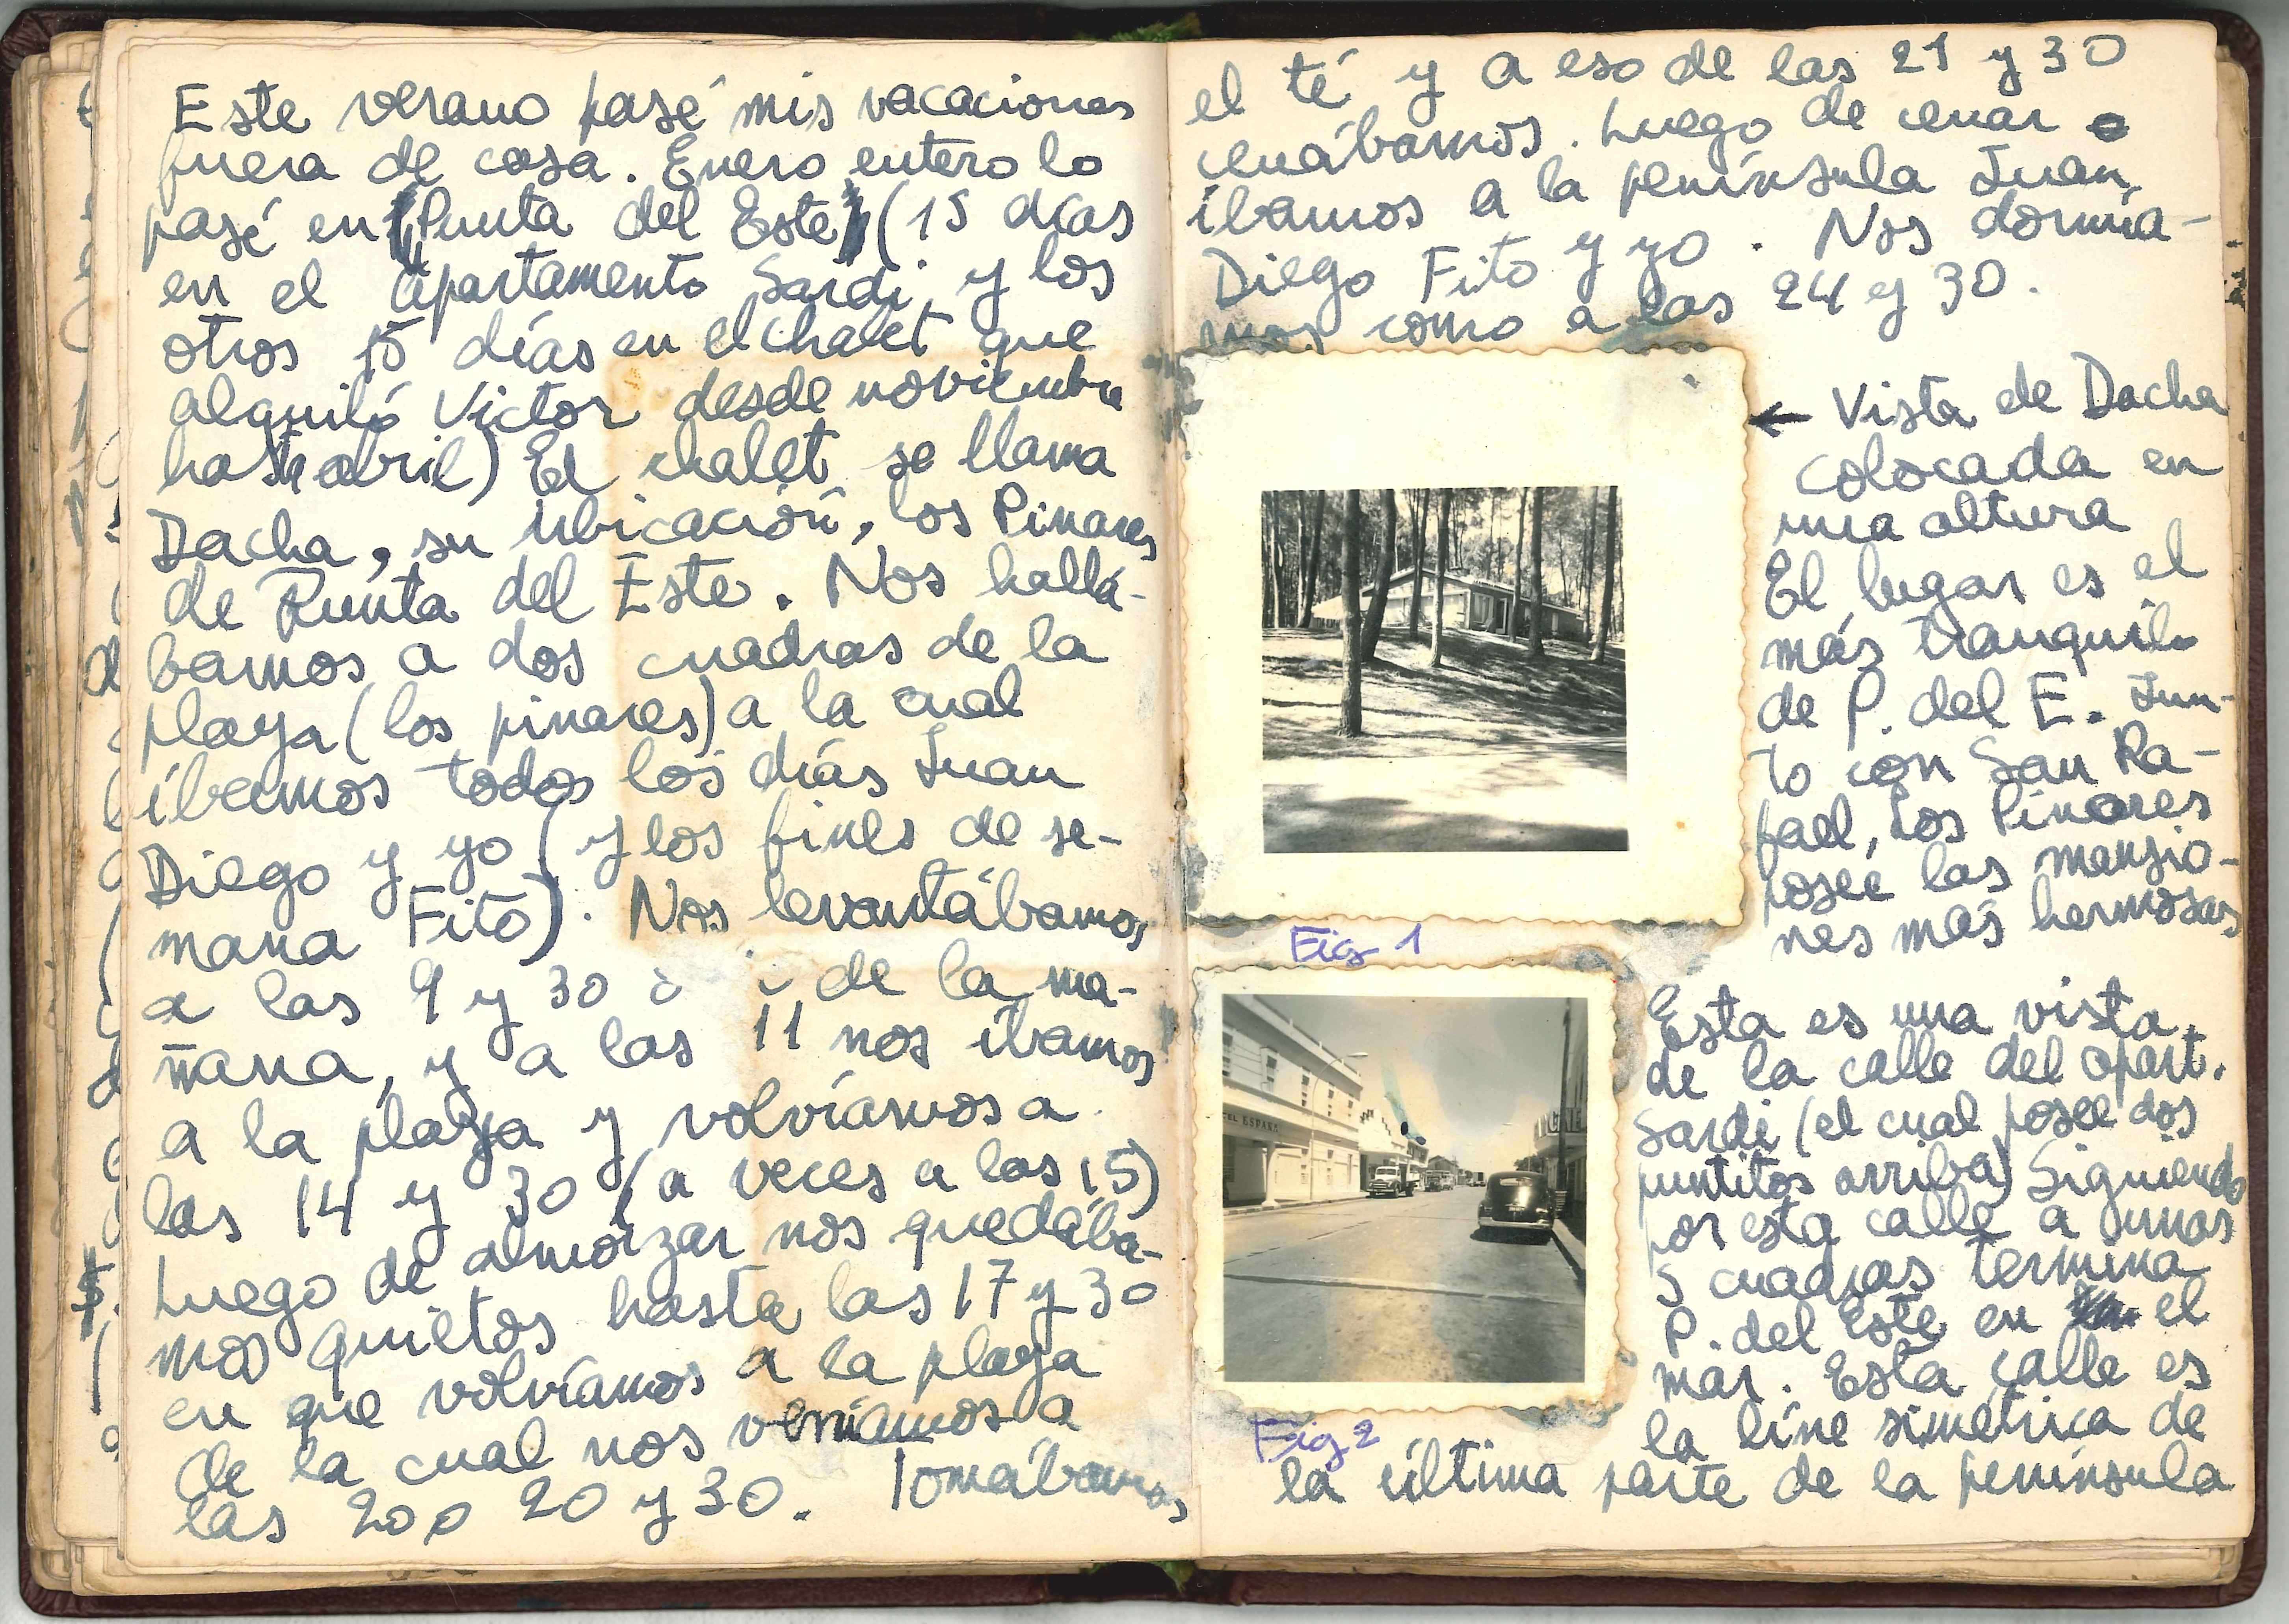 Este verano pasé mis vacaciones
fuera de casa. Enero entero lo
pasé en (Punta del Este) (15 días
en el apartamento Sardi y los
otros 15 días en el chalet que
alquiló Victor desde noviembre
hasta abril) El chalet se llama
Dacha, su ubicación, los Pinares
de Punta del Este. Nos hallá-
bamos a dos cuadras de la
playa (los pinares) a la cual
íbamos todos los días Juan
Diego y yo (y los fines de se-
mana Fito). Nos levantábamos
a las 9 y 30 de la ma-
ñana, y a las 11 nos íbamos
a la playa y volvíamos a
las 14 y 30 (a veces a las 15)
Luego de almorzar nos quedába-
mos quietos hasta las 17 y 30
en que volvíamos a la playa
de la cual nos veníamos a
las 20 o 20 y 30. Tomábamos
el té y a eso de las 21 y 30
cenábamos. Luego de cenar
íbamos a la península Juan
Diego Fito y yo. Nos dormía-
mos como a las 24 y 30.
← Vista de Dacha
colocada en
una altura
El lugar es el
más tranquilo
de P. del E. Jun-
to con San Ra-
fael, Los Pinares
posee las mansio-
nes más hermosas
Fig 1
Esta es una vista
de la calle del apart.
Sardi (el cual posee dos
puntitos arriba) Siguiendo
por esta calle a unas
5 cuadras termina
P. del Este en el
mar. Esta calle es
la líne simétrica de
la última parte de la península
Fig 2
EL ESPAÑA